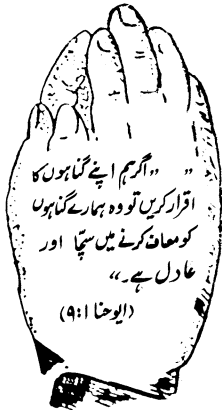 ”،، اگر ہم اپنے گناہوں کا
اقرار کریں تو وہ ہمارے گناہوں
کو معاف کرنے میں سچّا اور
عادل ہے۔“
(ایوحنا ۹:۱)